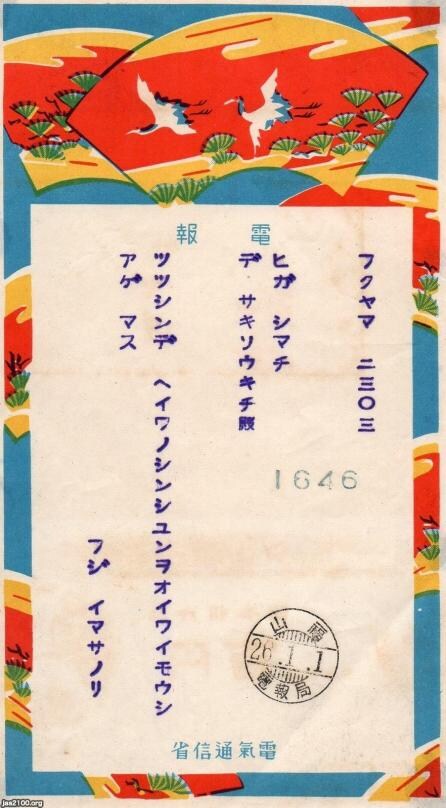 電報
フクヤマ 二三〇三
ヒガ シマチ
デ サキソウキチ殿
1646
ツツシンデ ヘイワノシンシユンヲオイワイモウシ
アゲ マス
フジ イマサノリ
福山
26.1.1
電報局
電氣通信省
jaa2100.org